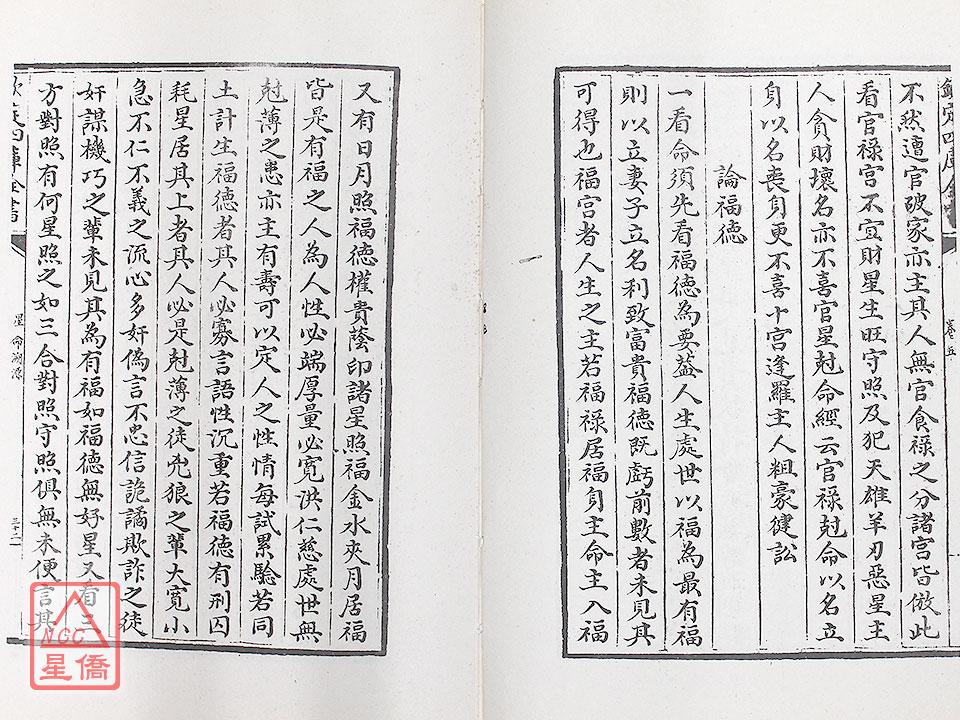 欽定四庫全書
卷五
不然遭官破家亦主其人無官食祿之分諸宮皆倣此
看官祿宮不宜財星生旺守照及犯天雄羊刃惡星主
人貪財壞名亦不喜官星尅命經云官祿尅命以名立
身以名喪身更不喜十宮逢羅主人粗豪健訟
論福德
一看命須先看福德為要蓋人生處世以福為最有福
則以立妻子立名利致富貴福德既虧前數者未見其
可得也福宮者人生之主若福祿居福身主命主入福
又有日月照福德權貴蔭印諸星照福金水夾月居福
皆是有福之人為人性必端厚量必寬洪仁慈處世無
尅薄之患亦主有壽可以定人之性情每試累驗若同
土計生福德者其人必寡言語性沉重若福德有刑囚
耗星居其上者其人必是尅薄之徒兇狼之輩大寬小
急不仁不義之流心多奸偽言不忠信詭譎欺詐之徒
奸謀機巧之輩未見其為有福如福德無好星又看三
方對照有何星照之如三合對照守照俱無未便言其
欽定四庫全書
星命溯源
三十二
NCC
星僑